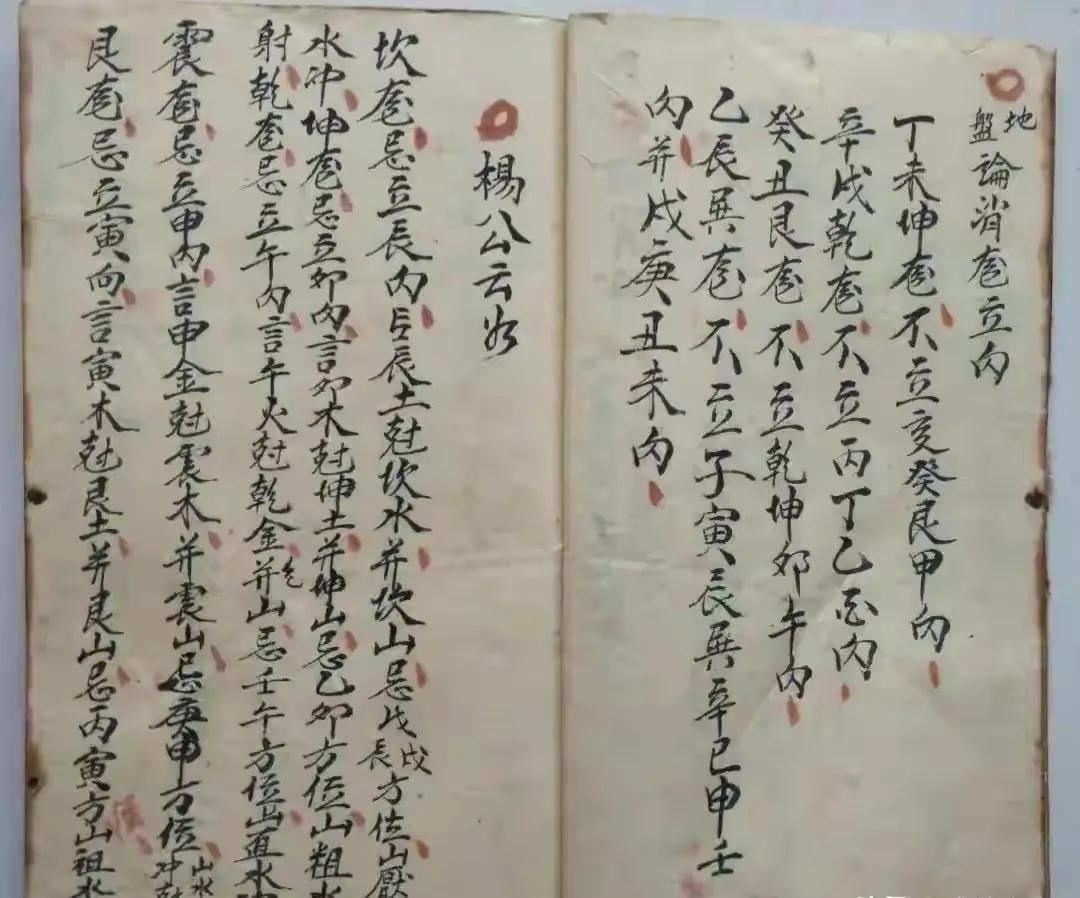 地盤論消龍立向
丁未坤龍不立亥癸艮甲向
辛戌乾龍不立丙丁乙酉向
癸丑艮龍不立乾坤卯午向
乙辰巽龍不立子寅辰巽辛巳申壬
向并戌庚丑未向
楊公云
坎龍忌立辰向占辰土尅坎水并坎山忌戊辰戌方位山壓
水冲坤龍忌立卯向言卯木尅坤土并坤山忌乙卯方位山粗水
射乾龍忌立午向言午火尅乾金并乾山忌壬午方位山直水
震龍忌立申向言申金尅震木并震山忌庚申方位山水冲
艮龍忌立寅向言寅木尅艮土并艮山忌丙寅方山祖水